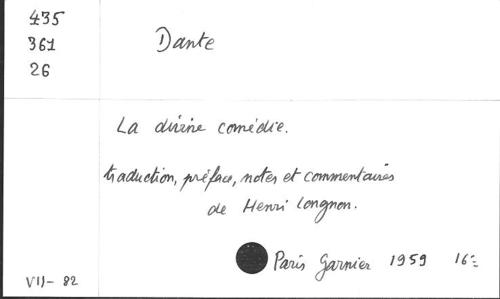 435
361
26
Dante
La divine comédie.
traduction, préface, notes et commentaires
de Henri Longnon.
Paris Garnier 1959 16º
VII - 82